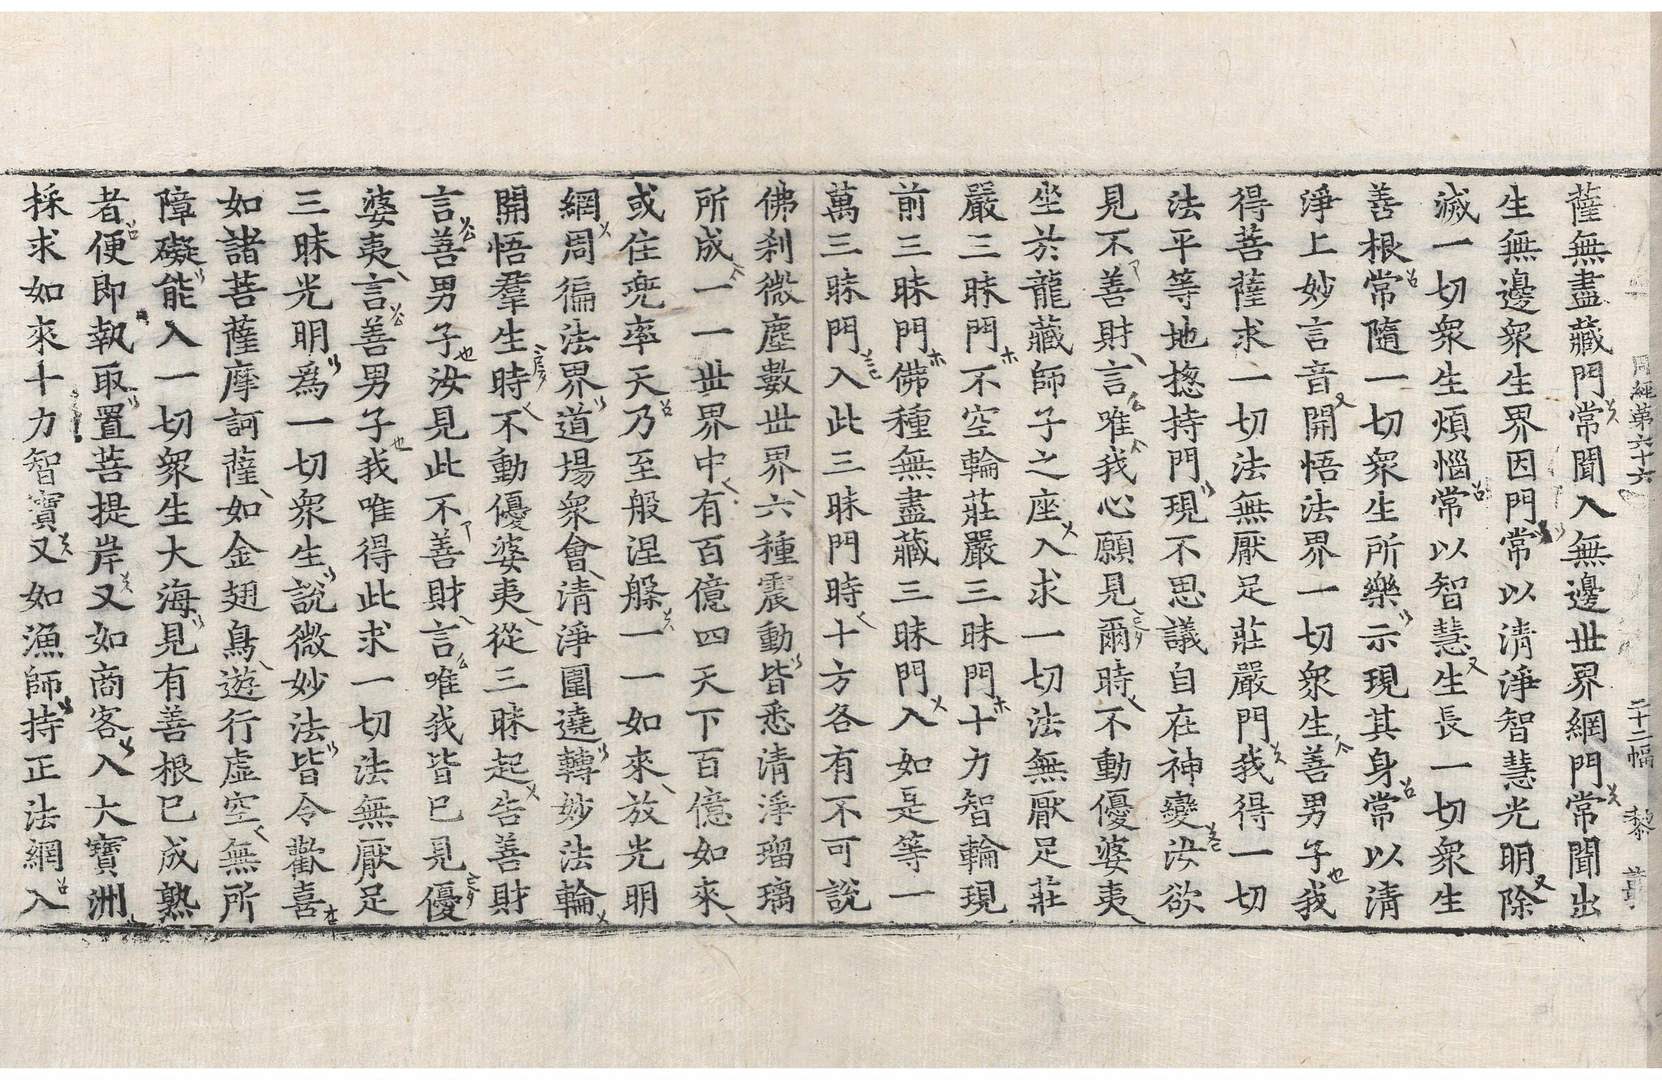 周經第六十六 二十二幅 黎
薩無盡藏門常聞入無邊世界網門常聞出
生無邊衆生界因門常以清淨智慧光明除
滅一切衆生煩惱常以智慧生長一切衆生
善根常隨一切衆生所樂示現其身常以清
淨上妙言音開悟法界一切衆生善男子我
得菩薩求一切法無厭足莊嚴門我得一切
法平等地揔持門現不思議自在神變汝欲
見不善財言唯我心願見爾時不動優婆夷
坐於龍藏師子之座入求一切法無厭足莊
嚴三昧門不空輪莊嚴三昧門十力智輪現
前三昧門佛種無盡藏三昧門入如是等一
萬三昧門入此三昧門時十方各有不可說
佛刹微塵數世界六種震動皆悉清淨瑠璃
所成一一世界中有百億四天下百億如來
或住兜率天乃至般涅槃一一如來放光明
網周徧法界道場衆會清淨圍遶轉妙法輪
開悟羣生時不動優婆夷從三昧起告善財
言善男子汝見此不善財言唯我皆已見優
婆夷言善男子我唯得此求一切法無厭足
三昧光明爲一切衆生說微妙法皆令歡喜
如諸菩薩摩訶薩如金翅鳥遊行虛空無所
障礙能入一切衆生大海見有善根已成熟
者便即執取置菩提岸又如商客入大寶洲
採求如來十力智寶又如漁師持正法網入